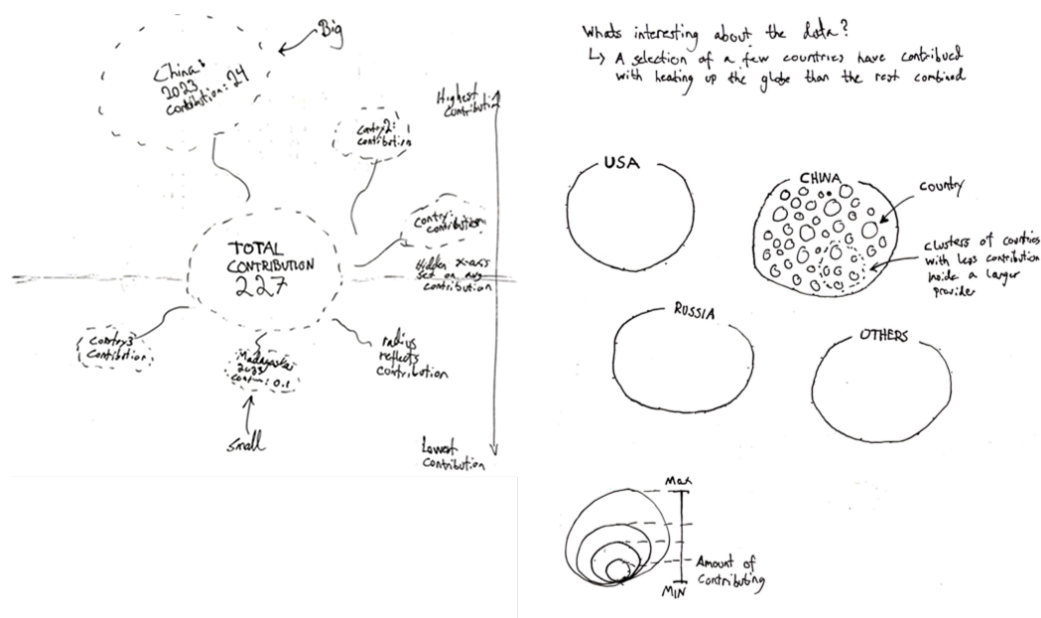 Big
China:
2023
contribution: 24
Highest
Contribution
Contry2:
contribution
Contry:
contribution
TOTAL
CONTRIBUTION
227
Hidden x-axis
set on avg
contribution
Contry3
Contribution
Madagaskar
2023
cont-: 0.1
radius
reflects
contribution
Small
Lowest
Contribution
Whats interesting about the data?
↳ A selection of a few countries have contribued
with heating up the globe than the rest combined
USA
CHINA
country
clusters of countries
with less contribution
inside a larger
provider
RUSSIA
OTHERS
Max
Amount of
Contributing
MIN